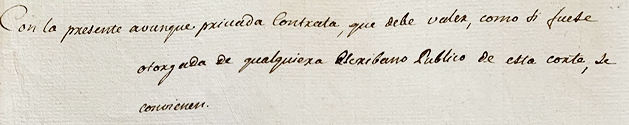 Con la presente avunque privada Contrata, que debe valer, como si fuese
otorgada de qualquiera Escribano Publico de esta corte, se
convienen.